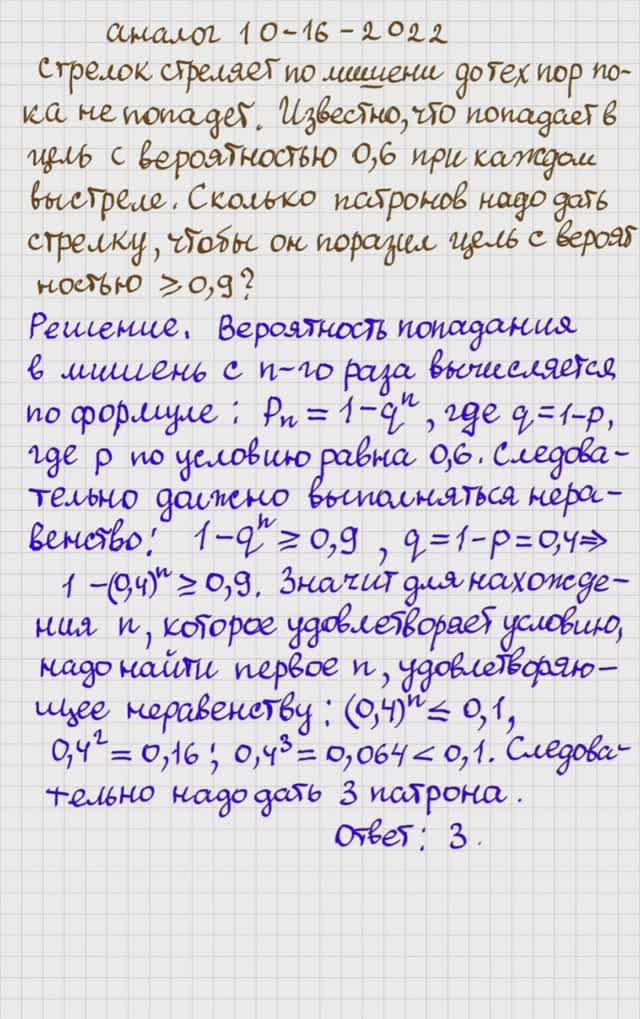 аналог 10-16-2022
Стрелок стреляет по мишени до тех пор по-
ка не попадет. Известно, что попадает в
цель с вероятностью 0,6 при каждом
выстреле. Сколько патронов надо дать
стрелку, чтобы он поразил цель с вероят
ностью ≥ 0,9?
Решение. Вероятность попадания
в мишень с n-го раза вычисляется
по формуле: Pₙ = 1-qⁿ, где q=1-p,
где p по условию равна 0,6. Следова-
тельно должно выполняться нера-
венство: 1-qⁿ ≥ 0,9, q=1-p=0,4⇒
1-(0,4)ⁿ ≥ 0,9. Значит для нахожде-
ния n, которое удовлетворяет условию,
надо найти первое n, удовлетворяю-
щее неравенству: (0,4)ⁿ ≤ 0,1,
0,4² = 0,16; 0,4³ = 0,064 < 0,1. Следова-
тельно надо дать 3 патрона.
Ответ: 3.